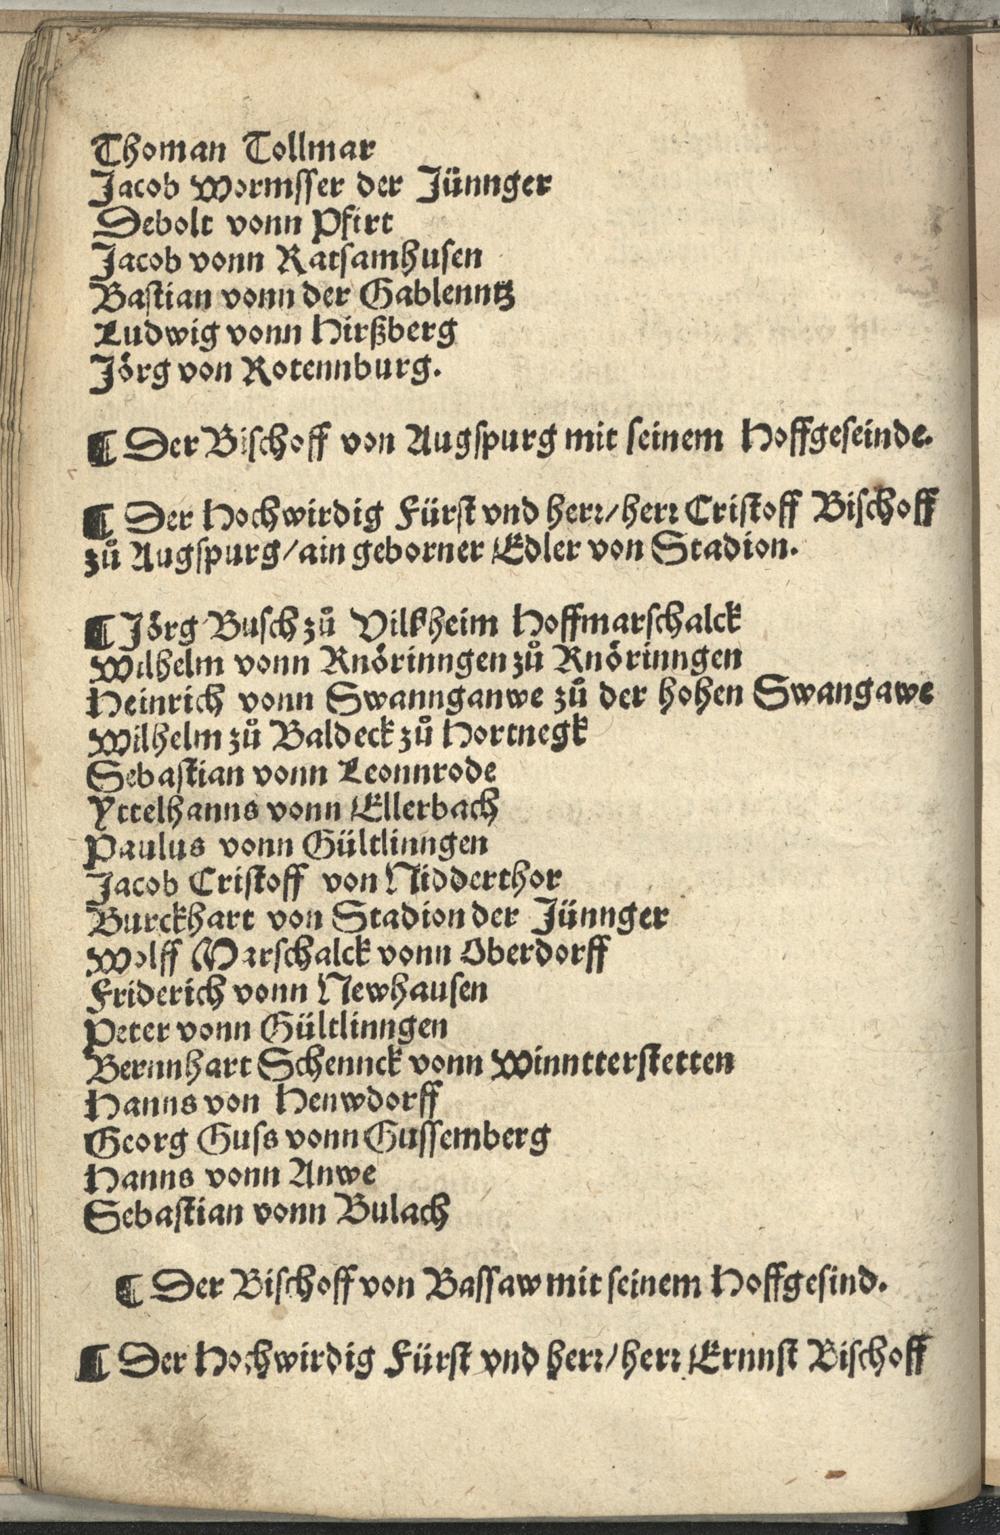 Thoman Tollmar
Jacob Wormsser der Jünnger
Debolt vonn Pfirt
Jacob vonn Ratsamhusen
Bastian vonn der Gablenntz
Ludwig vonn Hirßberg
Jörg von Rotennburg.
¶ Der Bischoff von Augspurg mit seinem Hoffgeseinde.
¶ Der Hochwirdig Fürst vnd herr/herr Cristoff Bischoff
zů Augspurg/ain geborner Edler von Stadion.
¶ Jörg Busch zů Vilßheim Hoffmarschalck
Wilhelm vonn Knörinngen zů Knörinngen
Heinrich vonn Swannganwe zů der hohen Swangawe
Wilhelm zů Baldeck zů Hortnegk
Sebastian vonn Leonnrode
Yttelhanns vonn Ellerbach
Paulus vonn Gültlinngen
Jacob Cristoff von Nidderthor
Burckhart von Stadion der Jünnger
Wolff Marschalck vonn Oberdorff
Friderich vonn Newhausen
Peter vonn Gültlinngen
Bernnhart Schennck vonn Winntterstetten
Hanns von Henwdorff
Georg Guss vonn Gussemberg
Hanns vonn Anwe
Sebastian vonn Bulach
¶ Der Bischoff von Bassaw mit seinem Hoffgesind.
¶ Der Hochwirdig Fürst vnd herr/herr Ernnst Bischoff